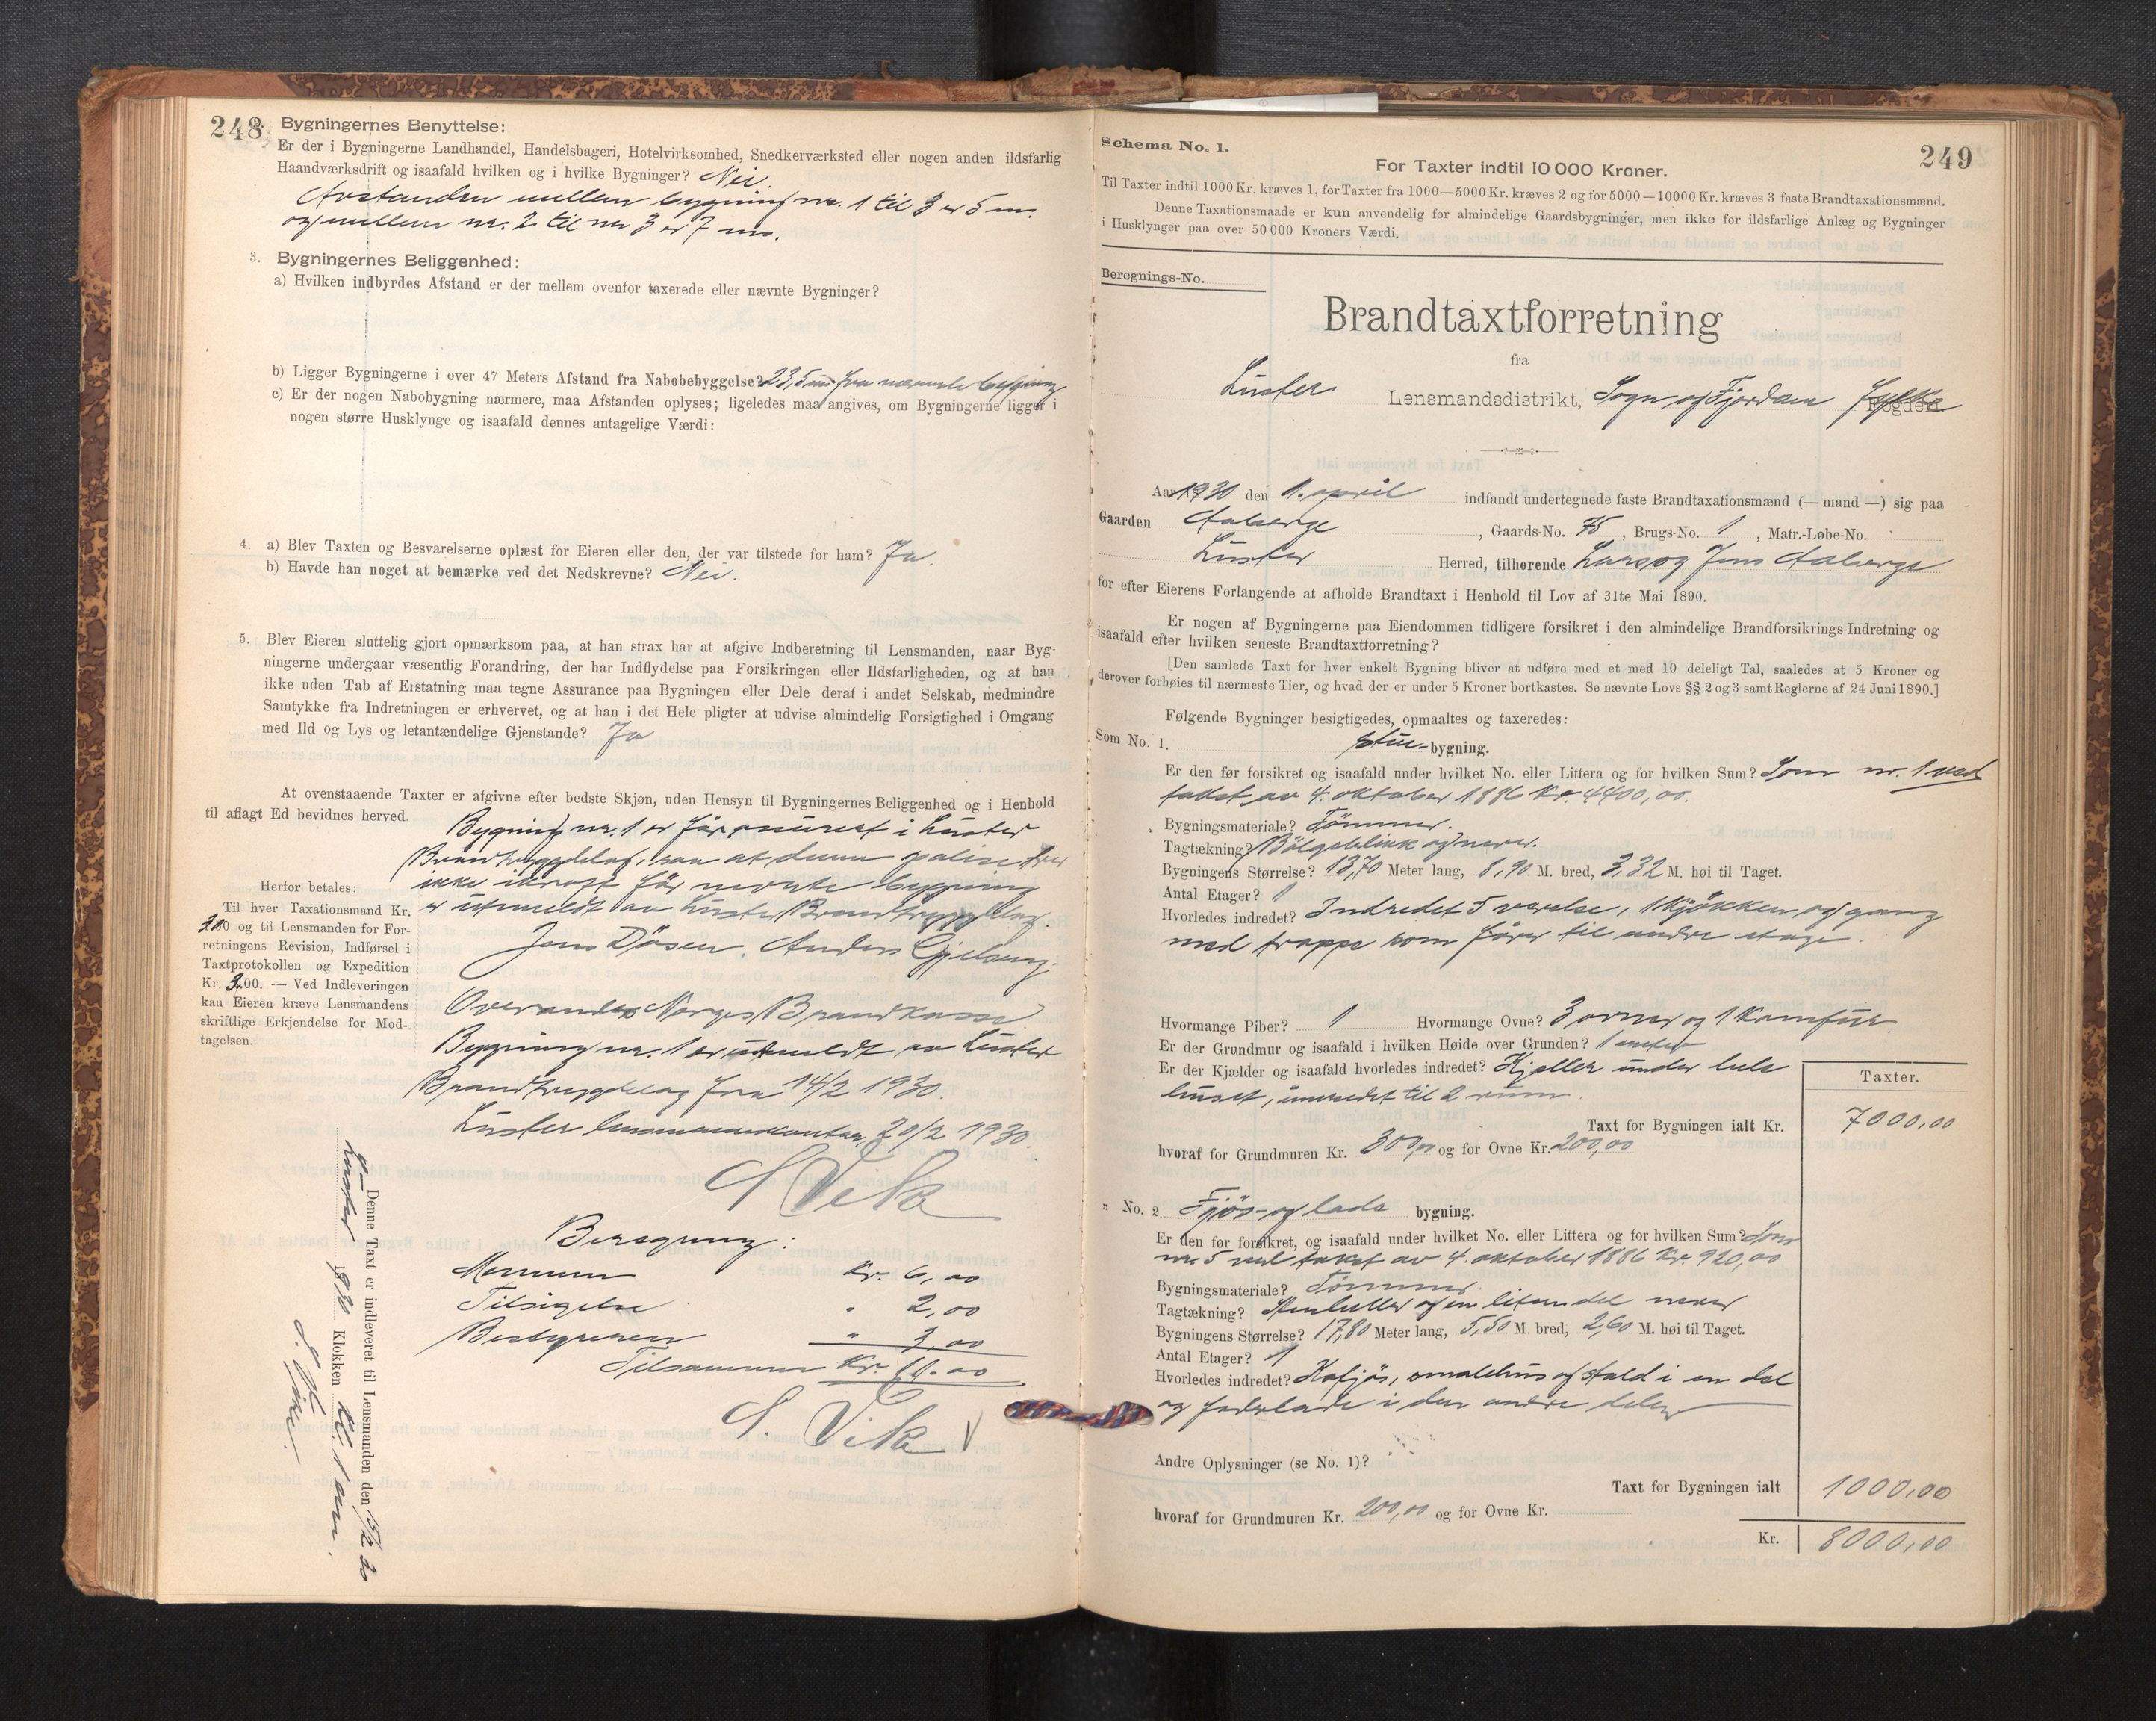 248
Bygningernes Benyttelse:
Er der i Bygningerne Landhandel, Handelsbageri, Hotelvirksomhed, Snedkerværksted eller nogen anden ildsfarlig
Haandværksdrift og isaafald hvilken og i hvilke Bygninger? Nei.
Avstanden mellem bygning nr. 1 til 3 er 5 m.
og mellem nr. 2 til nr 3 er 7 m.
3. Bygningernes Beliggenhed:
a) Hvilken indbyrdes Afstand er der mellem ovenfor taxerede eller nævnte Bygninger?
b) Ligger Bygningerne i over 47 Meters Afstand fra Nabobebyggelse? 23,5 m fra nærmeste bygning
c) Er der nogen Nabobygning nærmere, maa Afstanden oplyses; ligeledes maa angives, om Bygningerne ligger i
nogen større Husklynge og isaafald dennes antagelige Værdi:
4. a) Blev Taxten og Besvarelserne oplæst for Eieren eller den, der var tilstede for ham? Ja.
b) Havde han noget at bemærke ved det Nedskrevne? Nei.
5. Blev Eieren sluttelig gjort opmærksom paa, at han strax har at afgive Indberetning til Lensmanden, naar Byg-
ningerne undergaar væsentlig Forandring, der har Indflydelse paa Forsikringen eller Ildsfarligheden, og at han
ikke uden Tab af Erstatning maa tegne Assurance paa Bygningen eller Dele deraf i andet Selskab, medmindre
Samtykke fra Indretningen er erhvervet, og at han i det Hele pligter at udvise almindelig Forsigtighed i Omgang
med Ild og Lys og letantændelige Gjenstande? Ja
At ovenstaaende Taxter er afgivne efter bedste Skjøn, uden Hensyn til Bygningernes Beliggenhed og i Henhold
til aflagt Ed bevidnes herved.
Bygning nr. 1 er før assurert i Luster
Brandtrygdelag, saa at denne polise trer
ikke ikraft før nevnte bygning
er utmeldt av Luster Brandtrygdelag.
Jens Døsen. Anders Gjelsvig.
Oversendes Norges Brandkasse
Bygning nr. 1 er utmeldt av Luster
Brandtrygdelag fra 14/2 1930.
Luster lensmannskontor, 20/2 1930.
S Vik
Herfor betales:
Til hver Taxationsmand Kr.
3.00 og til Lensmanden for For-
retningens Revision, Indførsel i
Taxtprotokollen og Expedition
Kr. 3.00. — Ved Indleveringen
kan Eieren kræve Lensmandens
skriftlige Erkjendelse for Mod-
tagelsen.
Beregning:
Mennene Kr. 6,00
Tilsigelse " 2,00
Bestyreren " 3,00
Tilsammen Kr. 11.00
S. Vik
Denne Taxt er indleveret til Lensmanden den 15/2
Luster 1930 Klokken
S. Vik.
249
Schema No. 1.
For Taxter indtil 10 000 Kroner.
Til Taxter indtil 1000 Kr. kræves 1, for Taxter fra 1000—5000 Kr. kræves 2 og for 5000—10000 Kr. kræves 3 faste Brandtaxationsmænd.
Denne Taxationsmaade er kun anvendelig for almindelige Gaardsbygninger, men ikke for ildsfarlige Anlæg og Bygninger
i Husklynger paa over 50 000 Kroners Værdi.
Beregnings-No.
Brandtaxtforretning
fra
Luster Lensmandsdistrikt, Sogn og Fjordane Fylke Fogderi
Aar 1930 den 1. april indfandt undertegnede faste Brandtaxationsmænd (— mand —) sig paa
Gaarden Aaberge, Gaards-No. 75, Brugs-No. 1, Matr.-Løbe-No.
Luster Herred, tilhørende Lars og Jens Aaberge
for efter Eierens Forlangende at afholde Brandtaxt i Henhold til Lov af 31te Mai 1890.
Er nogen af Bygningerne paa Eiendommen tidligere forsikret i den almindelige Brandforsikrings-Indretning og
isaafald efter hvilken seneste Brandtaxtforretning?
[Den samlede Taxt for hver enkelt Bygning bliver at udføre med et med 10 deleligt Tal, saaledes at 5 Kroner og
derover forhøies til nærmeste Tier, og hvad der er under 5 Kroner bortkastes. Se nævnte Lovs §§ 2 og 3 samt Reglerne af 24 Juni 1890.]
Følgende Bygninger besigtigedes, opmaaltes og taxeredes:
Som No. 1. Stue-bygning.
Er den før forsikret og isaafald under hvilket No. eller Littera og for hvilken Sum? Som nr. 1 ved
takst av 4. oktober 1886 Kr. 4400,00.
Bygningsmateriale? Tømmer.
Tagtækning? Bølgeblikk og never.
Bygningens Størrelse? 13,70 Meter lang, 8,90 M. bred, 3,32 M. høi til Taget.
Antal Etager? 1
Hvorledes indredet? Indredet 5 værelse, 1 kjøkken og gang
med trappe som fører til andre etage.
Hvormange Piber? 1 Hvormange Ovne? 3 ovner og 1 Komfur
Er der Grundmur og isaafald i hvilken Høide over Grunden? 1 meter
Er der Kjælder og isaafald hvorledes indredet? Kjeller under hele
huset, innredet til 2 rum.
Taxter.
Taxt for Bygningen ialt Kr. 7000,00
hvoraf for Grundmuren Kr. 300,00 og for Ovne Kr. 200,00
" No. 2. Fjøs- og lade bygning.
Er den før forsikret, og isaafald under hvilket No. eller Littera og for hvilken Sum? Som
nr. 5 ved takst av 4. oktober 1886 Kr. 920,00
Bygningsmateriale? Tømmer
Tagtækning? Stenheller og en liten del never
Bygningens Størrelse? 17,80 Meter lang, 5,50 M. bred, 2,60 M. høi til Taget.
Antal Etager? 1
Hvorledes indredet? Kufjøs, smalehus og stald i en del
og forlade i den andre delen
Andre Oplysninger (se No. 1)?
Taxt for Bygningen ialt 1000,00
hvoraf for Grundmuren Kr. 200,00 og for Ovne Kr.
Kr. 8000,00